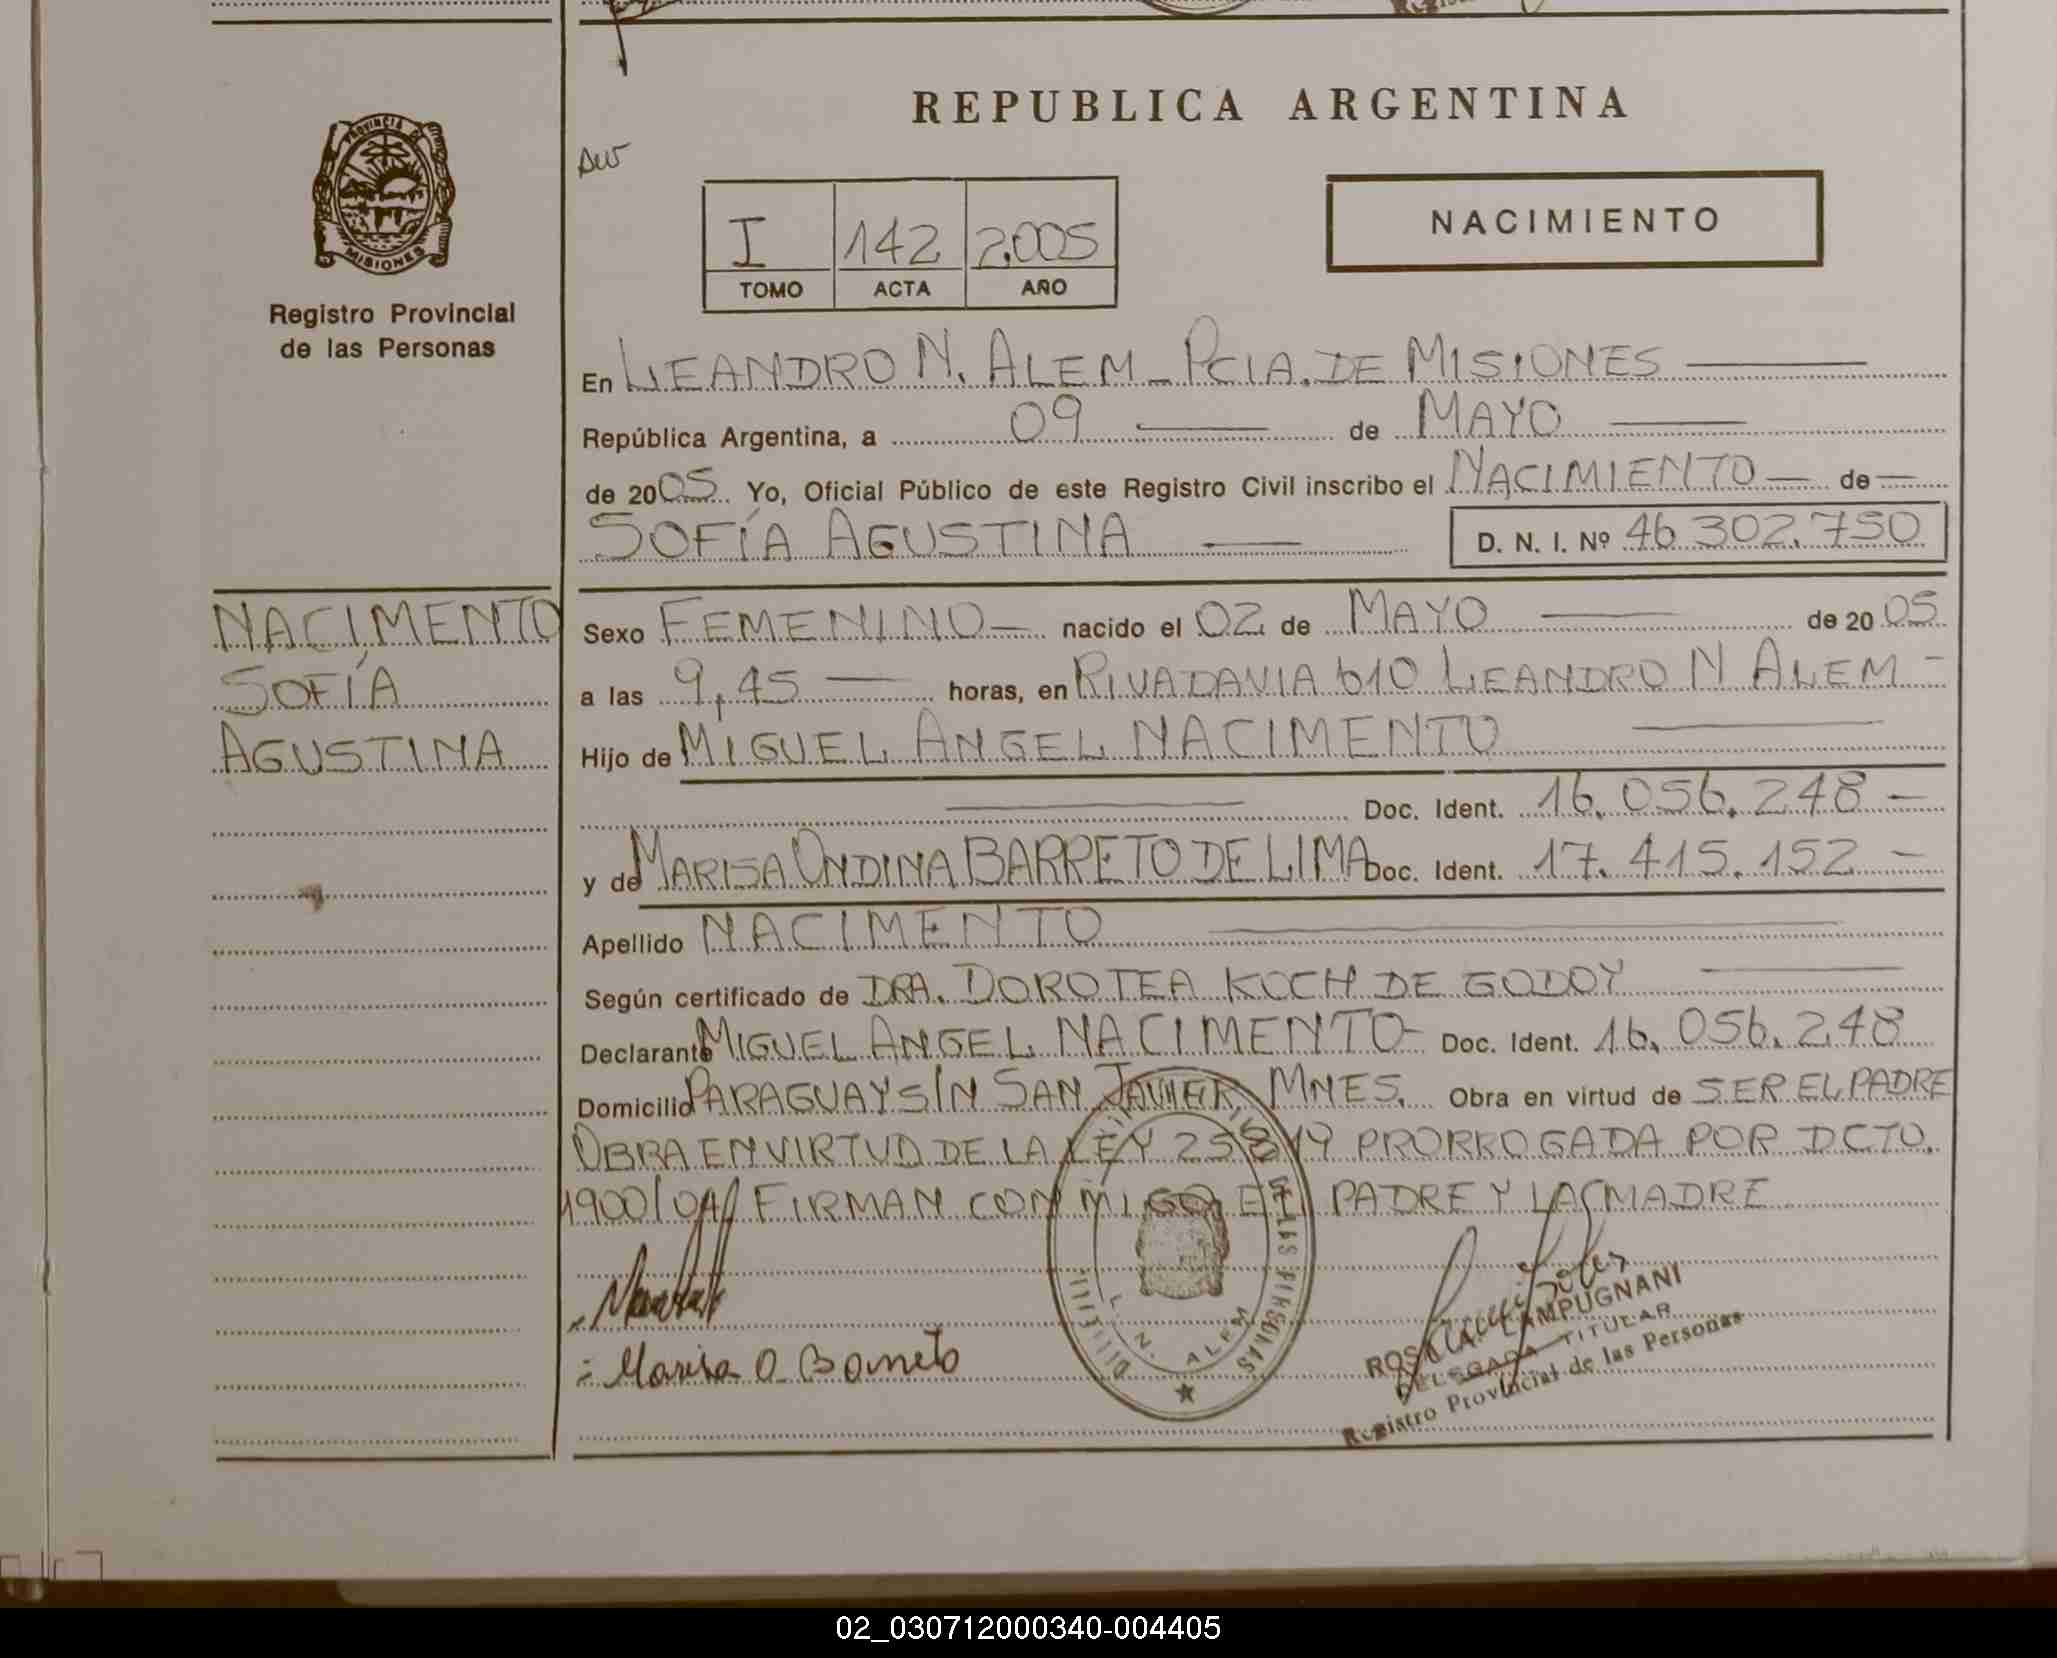 REPUBLICA ARGENTINA
PROVINCIA DE
MISIONES
Registro Provincial
de las Personas
I 142 2.005
TOMO ACTA AÑO
NACIMIENTO
En LEANDRO N. ALEM _ PCIA. DE MISIONES
República Argentina, a 09 de MAYO
de 2005 Yo, Oficial Público de este Registro Civil inscribo el NACIMIENTO — de —
SOFÍA AGUSTINA — D. N. I. Nº 46.302.750
NACIMENTO
SOFÍA
AGUSTINA
Sexo FEMENINO — nacido el 02 de MAYO — de 2005
a las 9,45 — horas, en RIVADAVIA 610 LEANDRO N ALEM -
Hijo de MIGUEL ANGEL NACIMENTO
Doc. Ident. 16.056.248 -
y de MARISA ONDINA BARRETO DE LIMA Doc. Ident. 17.415.152 -
Apellido NACIMENTO
Según certificado de DRA. DOROTEA KOCH DE GODOY
Declarante MIGUEL ANGEL NACIMENTO - Doc. Ident. 16.056.248
Domicilio PARAGUAY S/N SAN JAVIER, MNES. Obra en virtud de SER EL PADRE
OBRA EN VIRTUD DE LA LEY 25819 PRORROGADA POR DCTO.
1900/04/ FIRMAN CONMIGO EL PADRE Y LA MADRE
Marisa O. Barreto
L. N. ALEM
LAMPUGNANI
DELEGADA TITULAR
Registro Provincial de las Personas
02_030712000340-004405